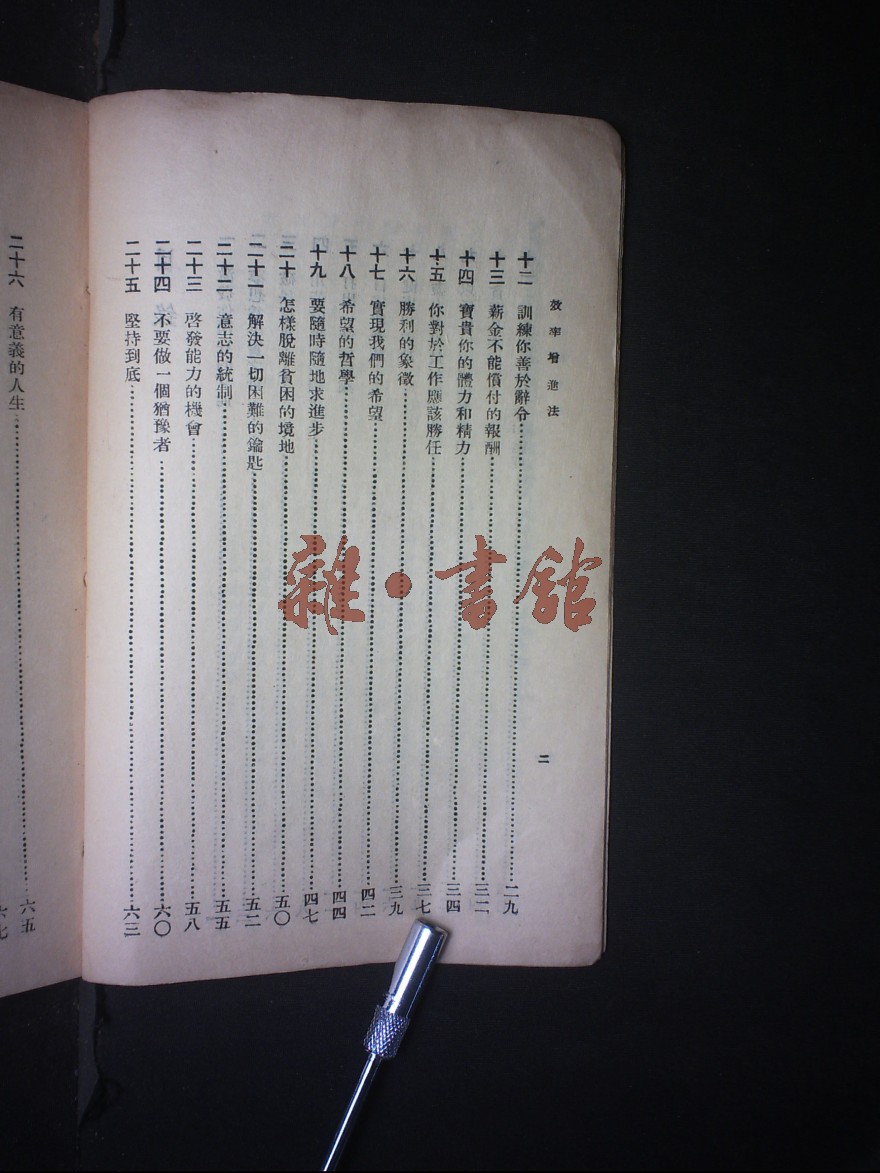 效率增進法
二
十二 訓練你善於辭令……二九
十三 薪金不能償付的報酬……三二
十四 寶貴你的體力和精力……三四
十五 你對於工作應該勝任……三七
十六 勝利的象徵……三九
十七 實現我們的希望……四二
十八 希望的哲學……四四
十九 要隨時隨地求進步……四七
二十 怎樣脫離貧困的境地……五〇
二十一 解決一切困難的鑰匙……五二
二十二 意志的統制……五五
二十三 啓發能力的機會……五八
二十四 不要做一個猶豫者……六〇
二十五 堅持到底……六三
二十六 有意義的人生……六五
六七
雜·書館